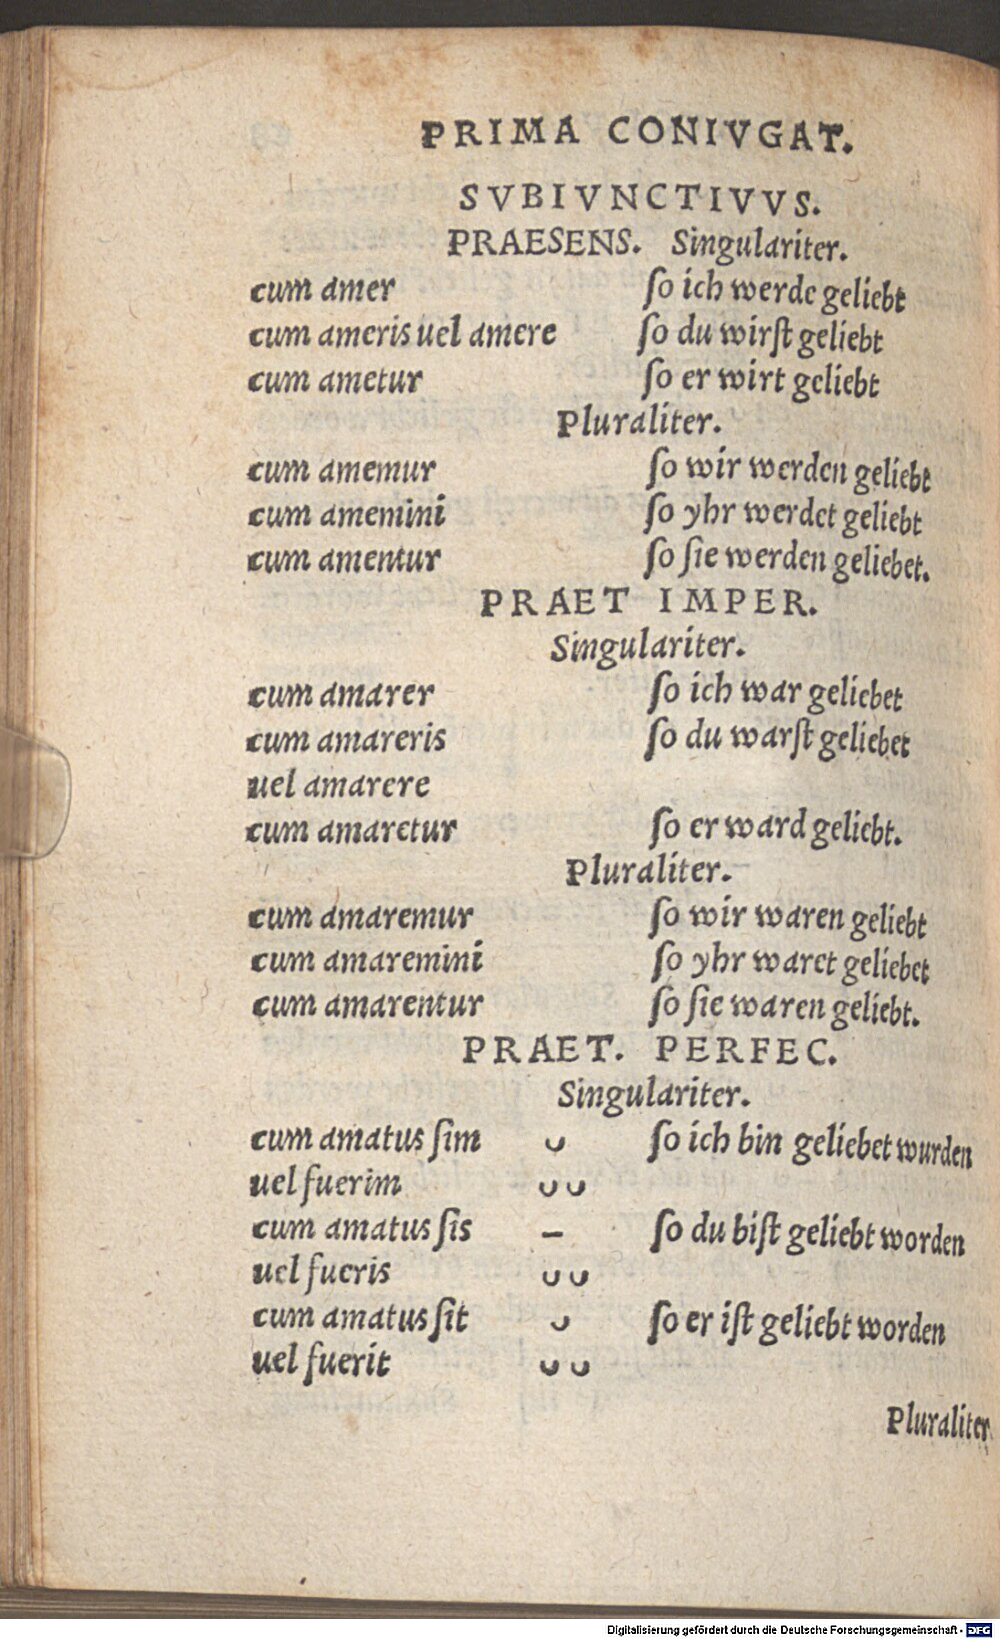 PRIMA CONIVGAT.
SVBIVNCTIVVS.
PRAESENS. Singulariter.
cum amer ſo ich werde geliebt
cum ameris uel amere ſo du wirſt geliebt
cum ametur ſo er wirt geliebt
Pluraliter.
cum amemur ſo wir werden geliebt
cum amemini ſo yhr werdet geliebt
cum amentur ſo ſie werden geliebet.
PRAET IMPER.
Singulariter.
cum amarer ſo ich war geliebet
cum amareris ſo du warſt geliebet
uel amarere
cum amaretur ſo er ward geliebt.
Pluraliter.
cum amaremur ſo wir waren geliebt
cum amaremini ſo yhr waret geliebet
cum amarentur ſo ſie waren geliebt.
PRAET. PERFEC.
Singulariter.
cum amatus ſim ᴗ ſo ich bin geliebet wurden
uel fuerim ᴗᴗ
cum amatus ſis – ſo du biſt geliebt worden
uel fueris ᴗᴗ
cum amatus ſit ᴗ ſo er iſt geliebt worden
uel fuerit ᴗᴗ
Pluraliter
Digitalisierung gefördert durch die Deutsche Forschungsgemeinschaft - DFG